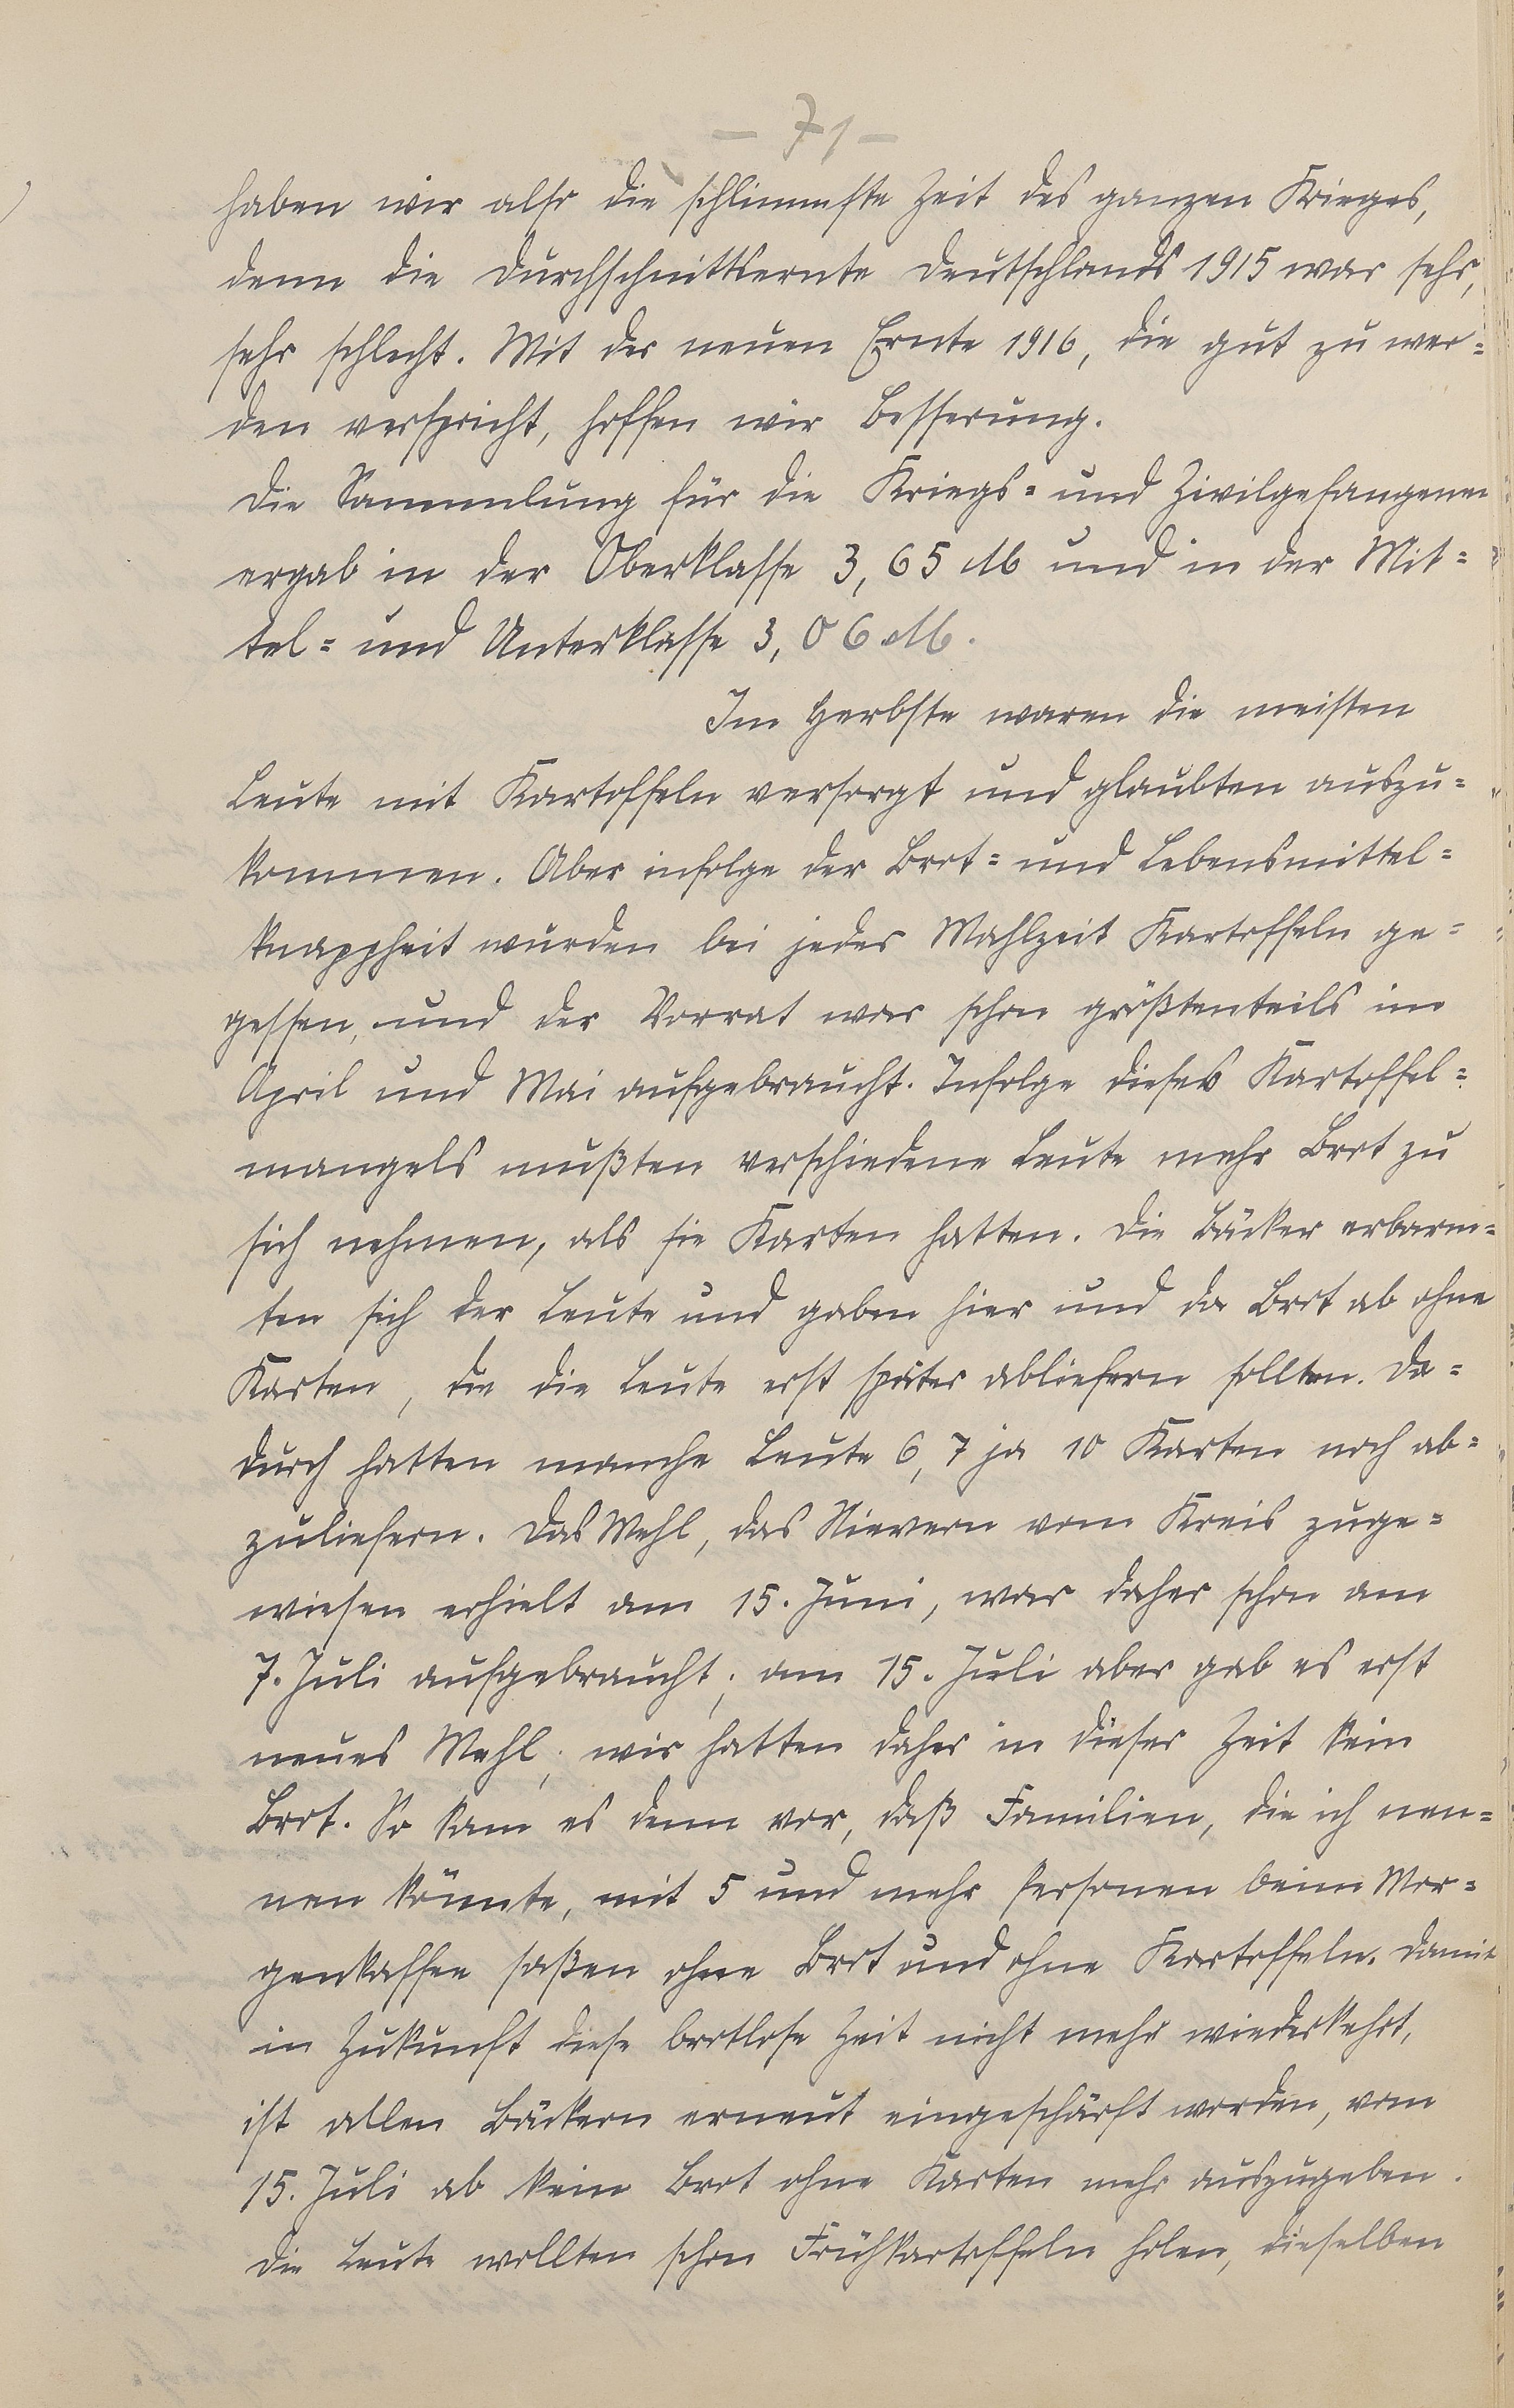 - 71 -
haben wir also die schlimmste Zeit des ganzen Krieges,
denn die Durchschnittsernte Deutschlands 1915 war sehr,
sehr schlecht. Mit der neuen Ernte 1916, die gut zu wer=
den verspricht, hoffen wir Besserung.
Die Sammlung für die Kriegs= und Zivilgefangenen
ergab in der Oberklasse 3,65 M und in der Mit=
tel= und Unterklasse 3,06 M.
Im Herbste waren die meisten
Leute mit Kartoffeln versorgt und glaubten auszu=
kommen. Aber infolge der Brot= und Lebensmittel=
knappheit wurden bei jeder Mahlzeit Kartoffeln ge=
gessen, und der Vorrat war schon größtenteils im
April und Mai aufgebraucht. Infolge dieses Kartoffel=
mangels mußten verschiedene Leute mehr Brot zu
sich nehmen, als sie Karten hatten. Die Bäcker erbarm=
ten sich der Leute und gaben hier und da Brot ab ohne
Karten, die die Leute erst später abliefern sollten. Da=
durch hatten manche Leute 6, 7 ja 10 Karten noch ab=
zuliefern. Das Mehl, das Nievern vom Kreis zuge=
wiesen erhielt am 15. Juni, war daher schon am
7. Juli aufgebraucht; am 15. Juli aber gab es erst
neues Mehl; wir hatten daher in dieser Zeit kein
Brot. So kam es denn vor, daß Familien, die ich nen=
nen könnte, mit 5 und mehr Personen beim Mor=
genkaffee saßen ohne Brot und ohne Kartoffeln. Damit
in Zukunft diese brotlose Zeit nicht mehr wiederkehrt,
ist allen Bäckern erneut eingeschärft worden, vom
15. Juli ab kein Brot ohne Karten mehr auszugeben.
Die Leute wollten schon Frühkartoffeln holen, dieselben